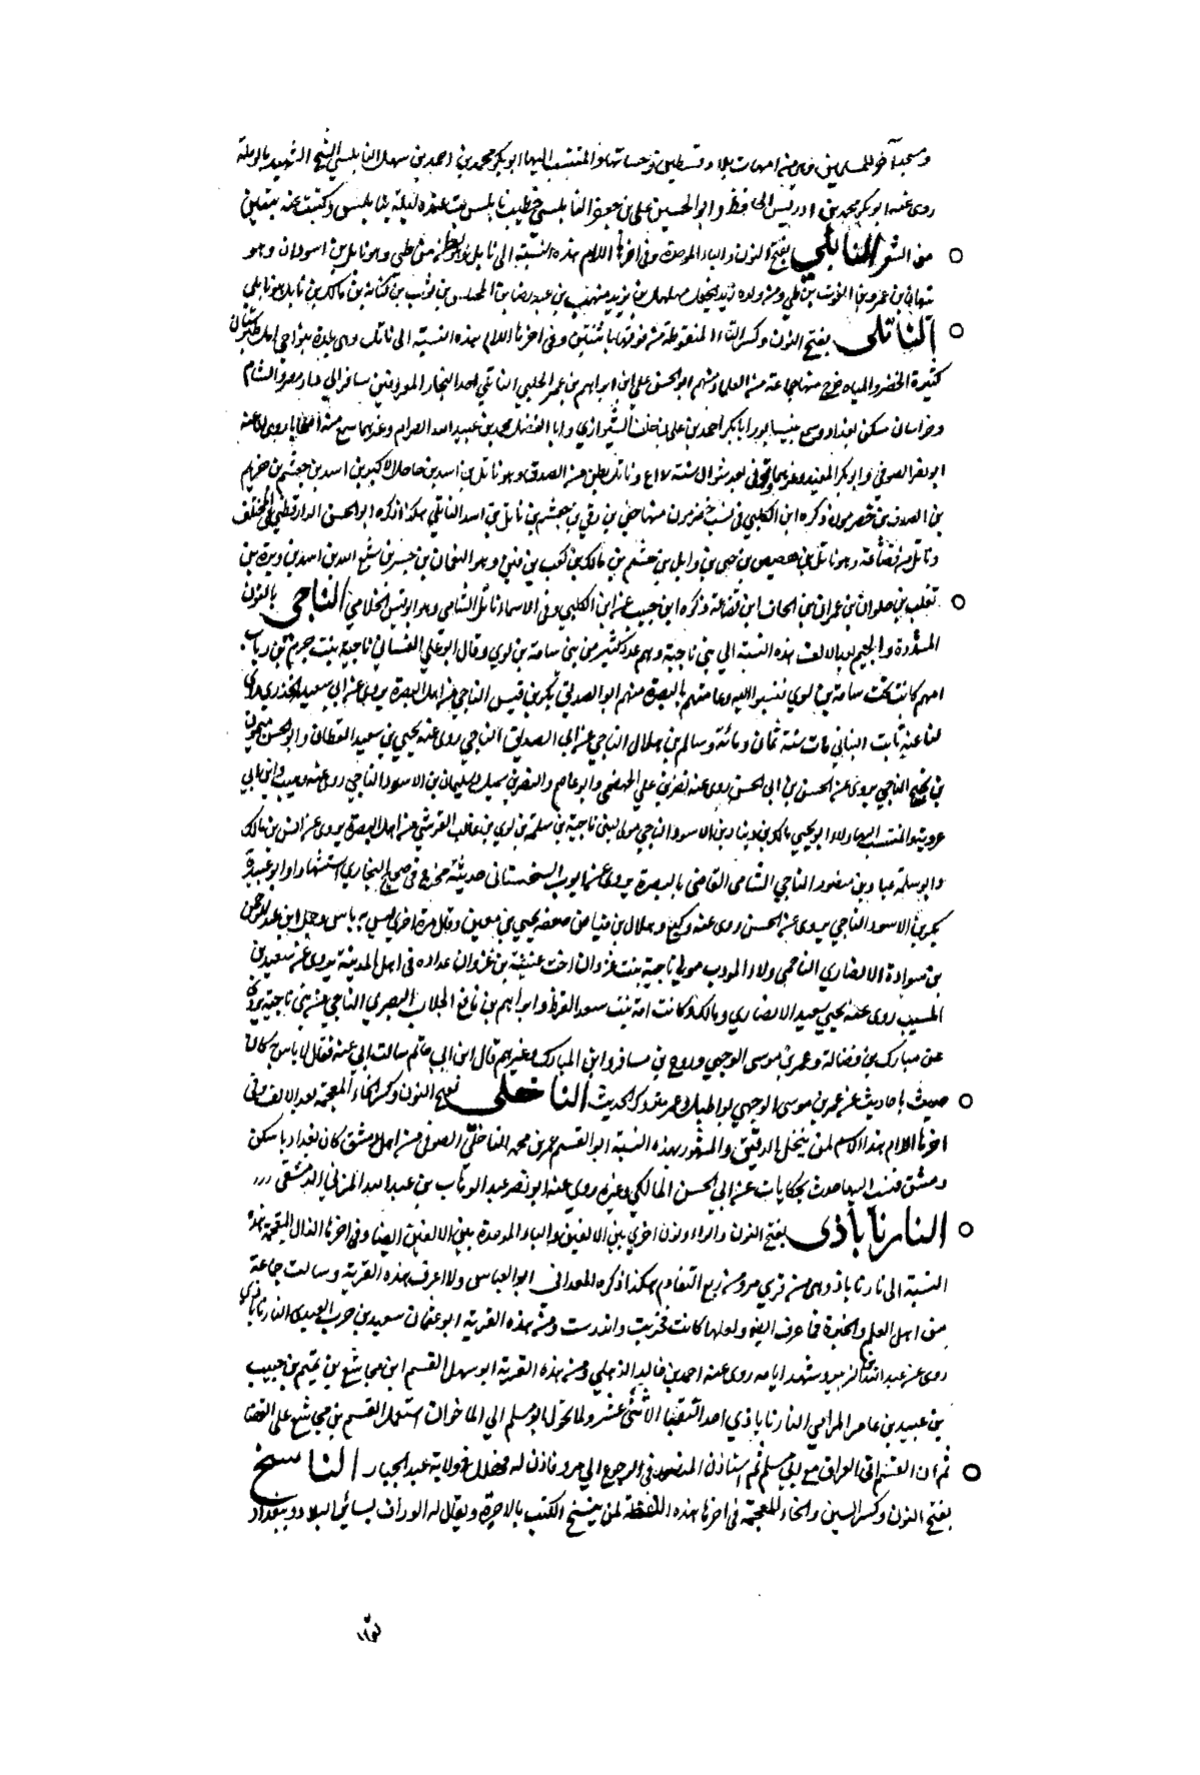 ومسجد آخر للمسلمين وهي من امهات بلاد فلسطين وحسناتها والمنتسب اليها ابو بكر محمد بن احمد بن سهل النابلسي الشيخ الشهيد بالرملة
روى عنه ابو بكر محمد بن ادريس الحافظ وابو الحسين علي بن جعفر النابلسي خطيب نابلس بت عنده ليلة بنابلس وكتبت عنه بيتين
من الشعر النابلي بفتح النون والباء الموحدة وفي اخرها اللام هذه النسبة الى نابل وهو بطن من طي وهو نابل بن اسودان وهو
نبهان بن عمرو بن الغوث بن طي ومن ولده زيد الخيل مهلهل بن يزيد بن منهب بن عبد رضا بن المختلس بن ثوب بن كنانة بن مالك بن نابل هو نابلي
الناتلي بفتح النون وكسر التاء المنقوطة من فوقها باثنتين وفي اخرها اللام هذه النسبة الى ناتل وهي بليدة بنواحي امل طبرستان
كثيرة الخضر والمياه خرج منها جماعة من العلماء ومنهم ابو الحسن علي بن ابراهيم بن عمر الحلبي الناتلي احد التجار المعروفين سافر الى ديار مصر والشام
وخراسان سكن بغداد وسمع بنيسابور ابا بكر احمد بن علي بن خلف الشيرازي وابا الفضل محمد بن عبيد الله الصرام وغيرهما سمع منه اصحابنا روى لنا عنه
ابو بكر المفيد وغيرهما وتوفي بعد شوال سنة وناتل بطن من الصدف وهو ناتل بن اسد بن جاحل الاكبر بن اسد بن جعشم بن حريم
بن الصدف من حضرموت ذكره ابن الكلبي في نسب حضرموت منها حي بن رقي بن جعشم بن ناتل بن اسد الناتلي هكذا ذكره ابو الحسن الدارقطني في المختلف
وناتل من قضاعة وهو ناتل بن هصيص بن حيي بن وايل بن جشم بن مالك بن كعب بن القين وهو النعمان بن جسر بن شيع الله بن اسد بن وبرة بن
تغلب بن حلوان بن عمران بن الحاف ابن قضاعة ذكره ابن حبيب عن ابن الكلبي وفي الاسماء ناتل الشامي وهو ابو قيس الحزامي الناجي بالنون
المشددة والجيم بعد الالف هذه النسبة الى بني ناجية وهم عدد كثير من بني سامة بن لوي وقال ابو علي الغساني ناجية بنت جرم بن ربان
امهم كانت تحت سامة بن لوي فنسبوا اليه وعامتهم بالبصرة منهم ابو الصديق بكر بن قيس الناجي من اهل البصرة يروى عن ابي سعيد الخدري روى
لنا عنه ثابت البناني مات سنة ثمان ومائة وسالم بن هلال الناجي عن ابي الصديق الناجي روى عنه يحيى بن سعيد القطان وابو الحسن ميمون
بن نجيح الناجي يروى عن الحسن بن ابي الحسن روى عنه نصر بن علي الجهضمي وابو عاصم والنضر بن شميل وسليمان بن الاسود الناجي روى عنه وهيب وابن ابي
عروبة والمنتسب اليها ولاء ابو يحيى مالك بن دينار بن الاسود الناجي مولى لبني ناجية بن سامة بن لوي بن غالب القرشي من اهل البصرة يروى عن انس بن مالك
وابو سلمة عباد بن منصور الناجي الشامي القاضي بالبصرة يروى عن ايوب السختياني حديثه مخرج في صحيح البخاري استشهادا وابو عبيدة
بكر بن الاسود الناجي يروى عن الحسن روى عنه وكيع وهلال بن فياض ضعفه يحيى بن معين وقال مرة اخرى ليس به باس وجميل ابن عبد الرحمن
بن سوادة الانصاري الناجي ولاء المودب مولى ناجية بنت غزوان اخت عتبة بن غزوان عداده في اهل المدينة يروى عن سعيد بن
المسيب روى عنه يحيى بن سعيد الانصاري ومالك وكانت امه بنت سعد القرظ وابراهيم بن نافع الجلاب البصري الناجي من بني ناجية يروى
عن مبارك بن فضالة وعمر بن موسى الوجيهي وروح بن مسافر وابن المبارك وغيرهم قال ابن ابي حاتم سالت ابي عنه فقال لا باس به كان
حدث باحاديث عن عمر بن موسى الوجيهي بواطيل وعمر متروك الحديث الناخلي بفتح النون وكسر الخاء المعجمة بعد الالف وفي
اخرها اللام هذا الاسم لمن ينخل الدقيق والمشهور بهذه النسبة ابو القسم عمر بن محمد الناخلي الصوفي من اهل دمشق كان بغداديا سكن
دمشق فنسب اليها حدث بحكايات عن ابي الحسن المالكي وغيره روى عنه ابو نصر عبد الوهاب بن عبد الله المزني الدمشقي
النارناباذي بفتح النون والراء ونون اخرى بين الالفين والباء الموحدة بين الالفين ايضا وفي اخرها الذال المعجمة هذه
النسبة الى نارناباذ وهي من قرى مرو من ربع التقادم هكذا ذكره المعداني ابو العباس ولا اعرف هذه القرية وسالت جماعة
من اهل العلم والخبرة فما عرف اليوم ولعلها كانت فخربت واندرست ومن هذه القرية ابو عثمان سعيد بن حرب العبدي النارناباذي
روى عن عبد الله بن الزبير وشهد ايامه روى عنه احمد بن خالد الذهلي ومن هذه القرية ابو سهل القسم ابن مجاشع بن تميم بن حبيب
بن عبيد بن عامر المرامي النارناباذي احد النقباء الاثنى عشر ولما تحول ابو مسلم الى الماخوان استعمل القسم بن مجاشع على القضاء
ثم ان القسم اتى العراق مع ابي مسلم ثم استاذن المنصور في الرجوع الى مرو فاذن له في ولاية عبد الجبار الناسخ
بفتح النون وكسر السين والخاء المعجمة في اخرها هذه اللفظة لمن ينسخ الكتب بالاجرة ويقال له الوراق بسائر البلاد وببغداد